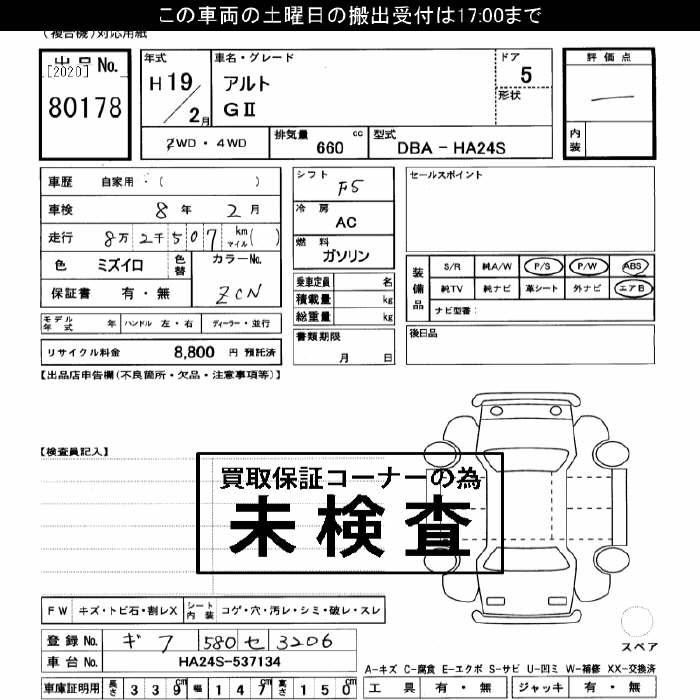 この車両の土曜日の搬出受付は17:00まで
(複合機)対応用紙
出品No.
[2020]
80178
年式
H 19
/2月
車名・グレード
アルト
GⅡ
ドア
5
形状
評価点
内装
2WD・4WD
排気量 660 cc
型式 DBA - HA24S
車歴 自家用・( )
車検 8年 2月
走行 8万2千507 km マイル( )
色 ミズイロ 色替
カラーNo. ZCN
保証書 有・無
モデル年式 年 ハンドル 左・右 ディーラー・並行
リサイクル料金 8,800 円 預託済
シフト F5
冷房 AC
燃料 ガソリン
乗車定員 名
積載量 kg
総重量 kg
書類期限
月 日
セールスポイント
装備品
S/R 純A/W P/S P/W ABS
純TV 純ナビ 革シート 外ナビ エアB
ナビ型番:
後日品
【出品店申告欄(不良箇所・欠品・注意事項等)】
【検査員記入】
買取保証コーナーの為
未検査
FW キズ・トビ石・割レX シート内装 コゲ・穴・汚レ・シミ・破レ・スレ
登録No. ギフ 580 セ 3206
車台No. HA24S-537134
車庫証明用 長さ 339cm 幅 147cm 高さ 150cm
スペア
A-キズ C-腐食 E-エクボ S-サビ U-凹ミ W-補修 XX-交換済
工具 有・無 ジャッキ 有・無